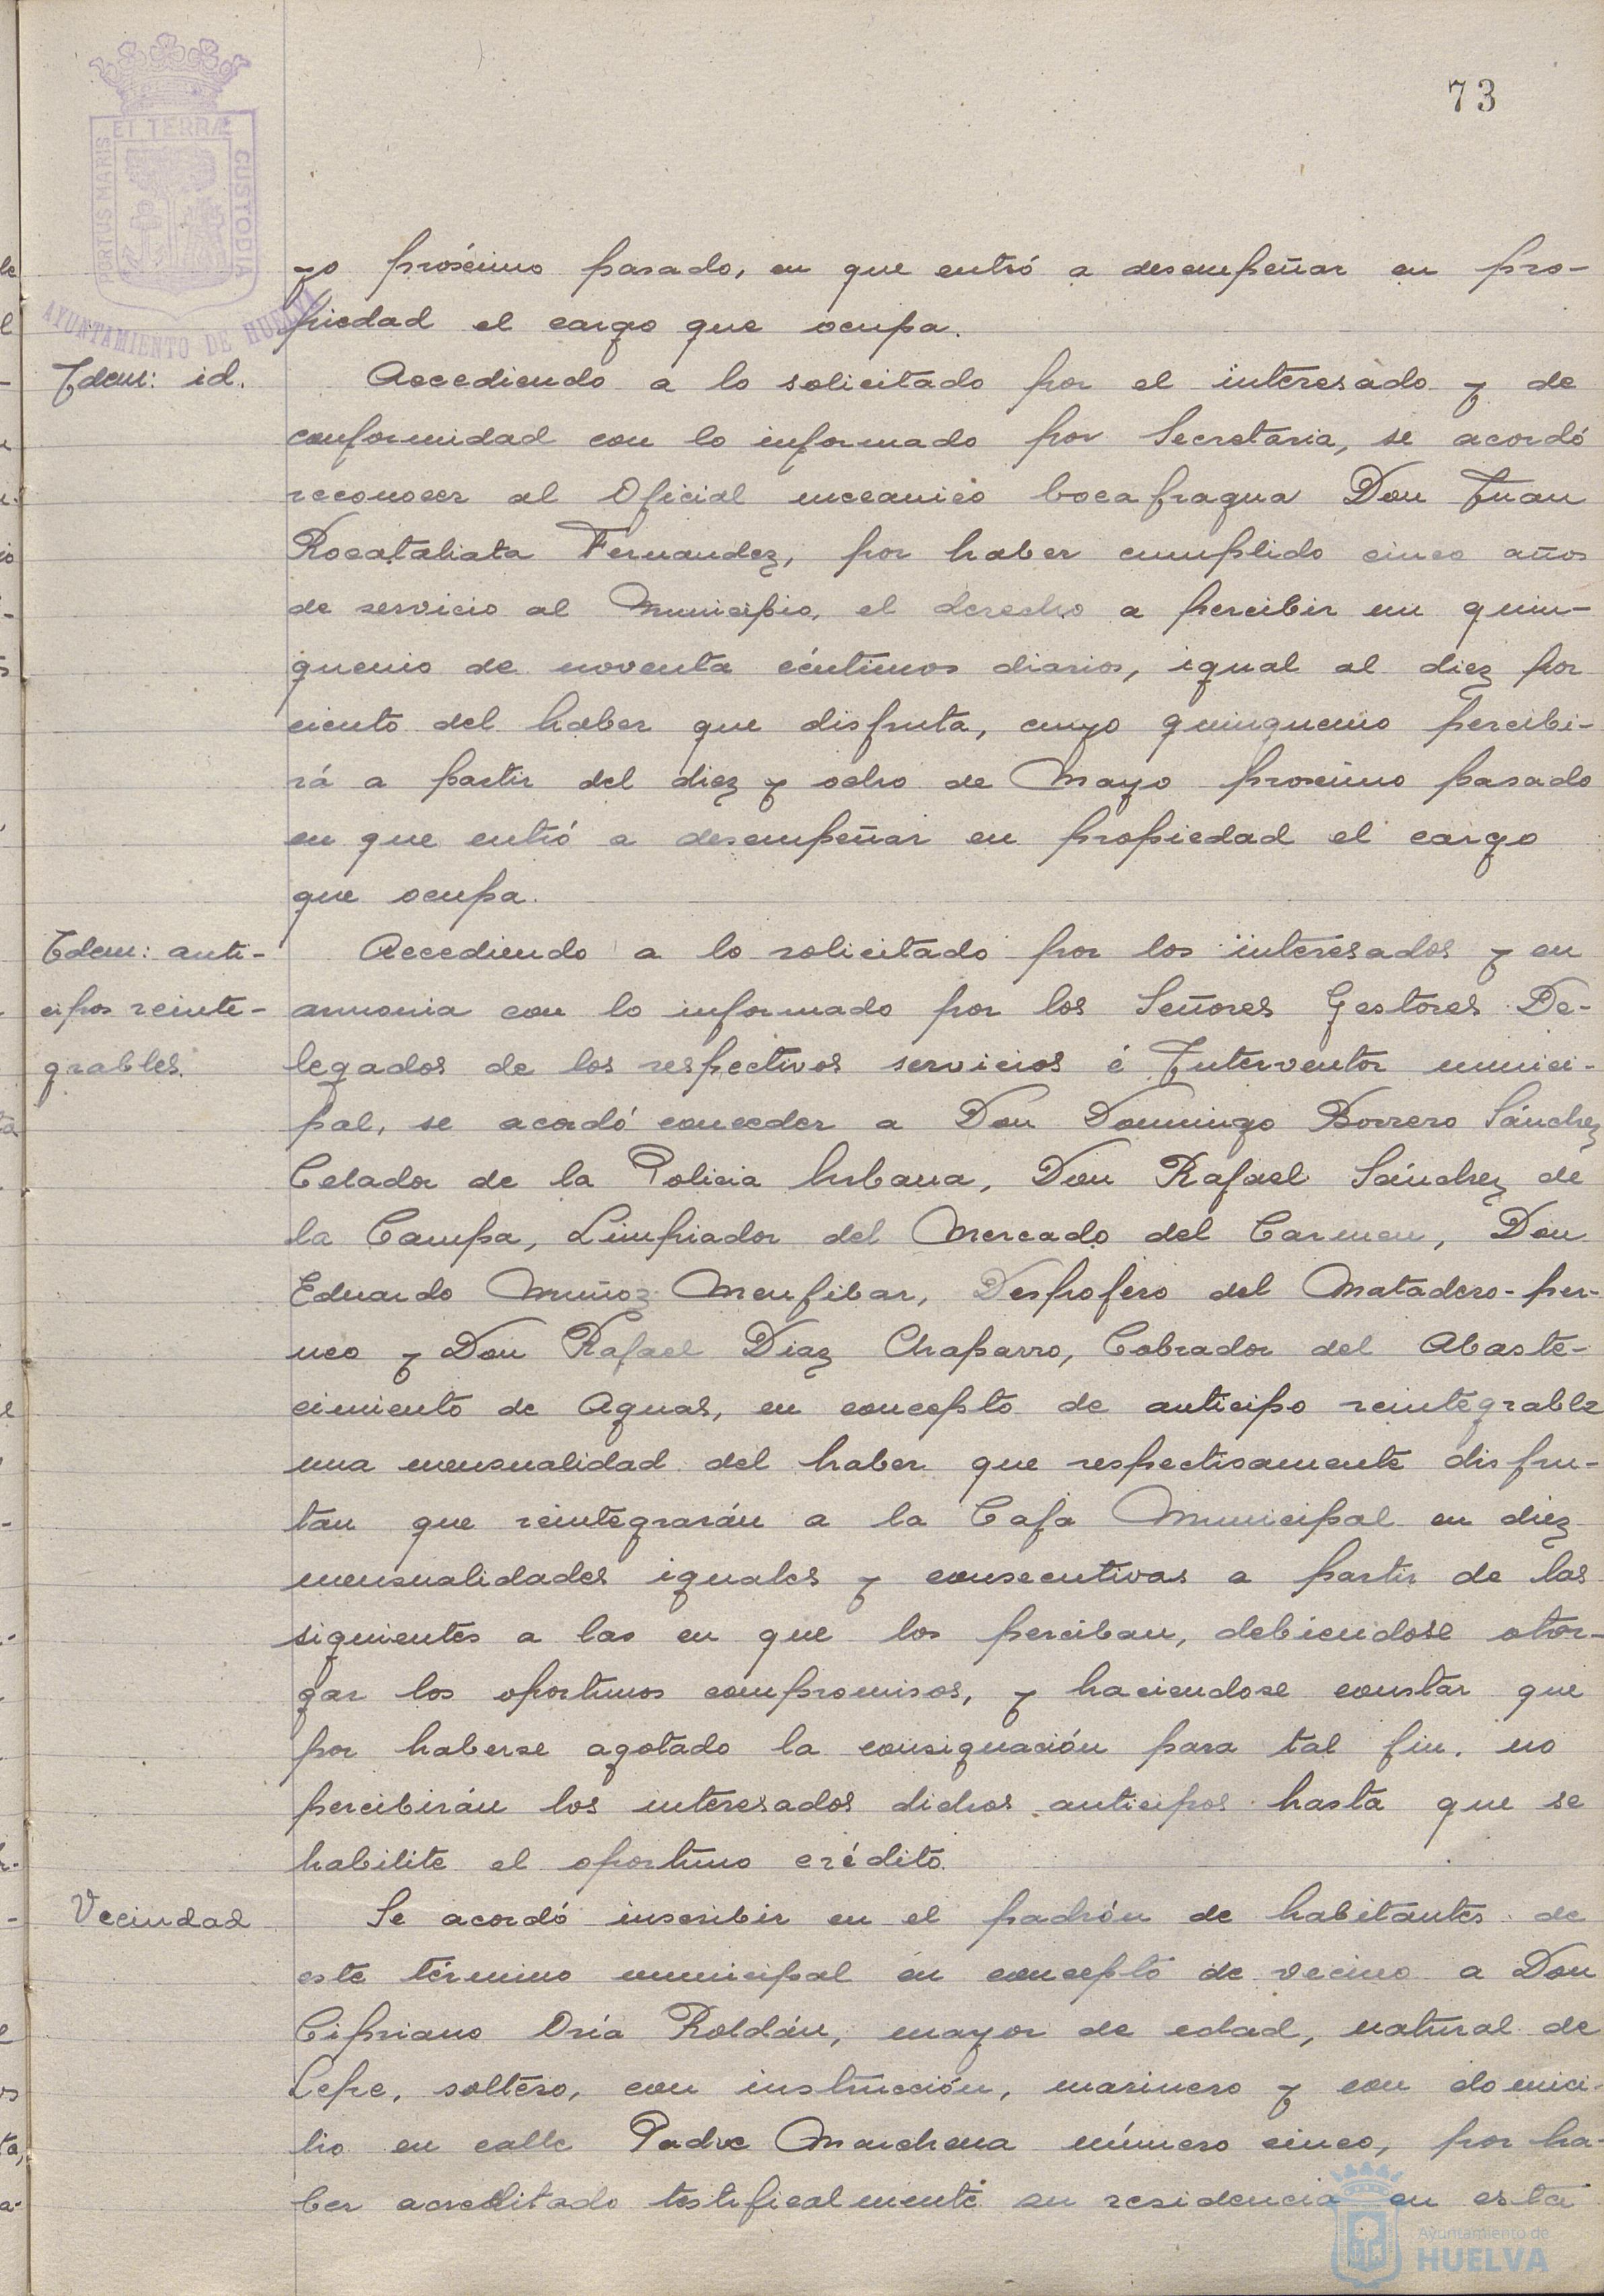 73
PORTUS MARIS ET TERRÆ CUSTODIA
AYUNTAMIENTO DE HUELVA
yo próximo pasado, en que entró a desempeñar en pro-
piedad el cargo que ocupa.
Idem: id.
Accediendo a lo solicitado por el interesado y de
conformidad con lo informado por Secretaria, se acordó
reconocer al Oficial mecanico bocafragua Don Juan
Rocataliata Fernandez, por haber cumplido cinco años
de servicio al Municipio, el derecho a percibir un quin-
quenio de noventa céntimos diarios, igual al diez por
ciento del haber que disfruta, cuyo quinquenio percibi-
rá a partir del diez y ocho de Mayo proximo pasado
en que entró a desempeñar en propiedad el cargo
que ocupa.
Idem: anti-
cipos reinte-
grables.
Accediendo a lo solicitado por los interesados y en
armonia con lo informado por los Señores Gestores De-
legados de los respectivos servicios é Interventor munici-
pal, se acordó conceder a Don Domingo Borrero Sánchez
Celador de la Policia Urbana, Don Rafael Sánchez de
la Campa, Limpiador del Mercado del Carmen, Don
Eduardo Muñoz Menjibar, Despojero del Matadero-per-
neo y Don Rafael Diaz Chaparro, Cobrador del Abaste-
cimiento de Aguas, en concepto de anticipo reintegrable
una mensualidad del haber que respectivamente disfru-
tan que reintegrarán a la Caja Municipal en diez
mensualidades iguales y consecutivas a partir de las
siguientes a las en que los perciban, debiendose otor-
gar los oportunos compromisos, y haciendose constar que
por haberse agotado la consignación para tal fin, no
percibirán los interesados dichos anticipos hasta que se
habilite el oportuno crédito.
Vecindad
Se acordó inscribir en el padrón de habitantes de
este término municipal en concepto de vecino a Don
Cipriano Oria Roldán, mayor de edad, natural de
Lepe, soltero, con instrucción, marinero y con domici-
lio en calle Padre Marchena número cinco, por ha-
ber acreditado testificalmente su residencia en esta
Ayuntamiento de
HUELVA